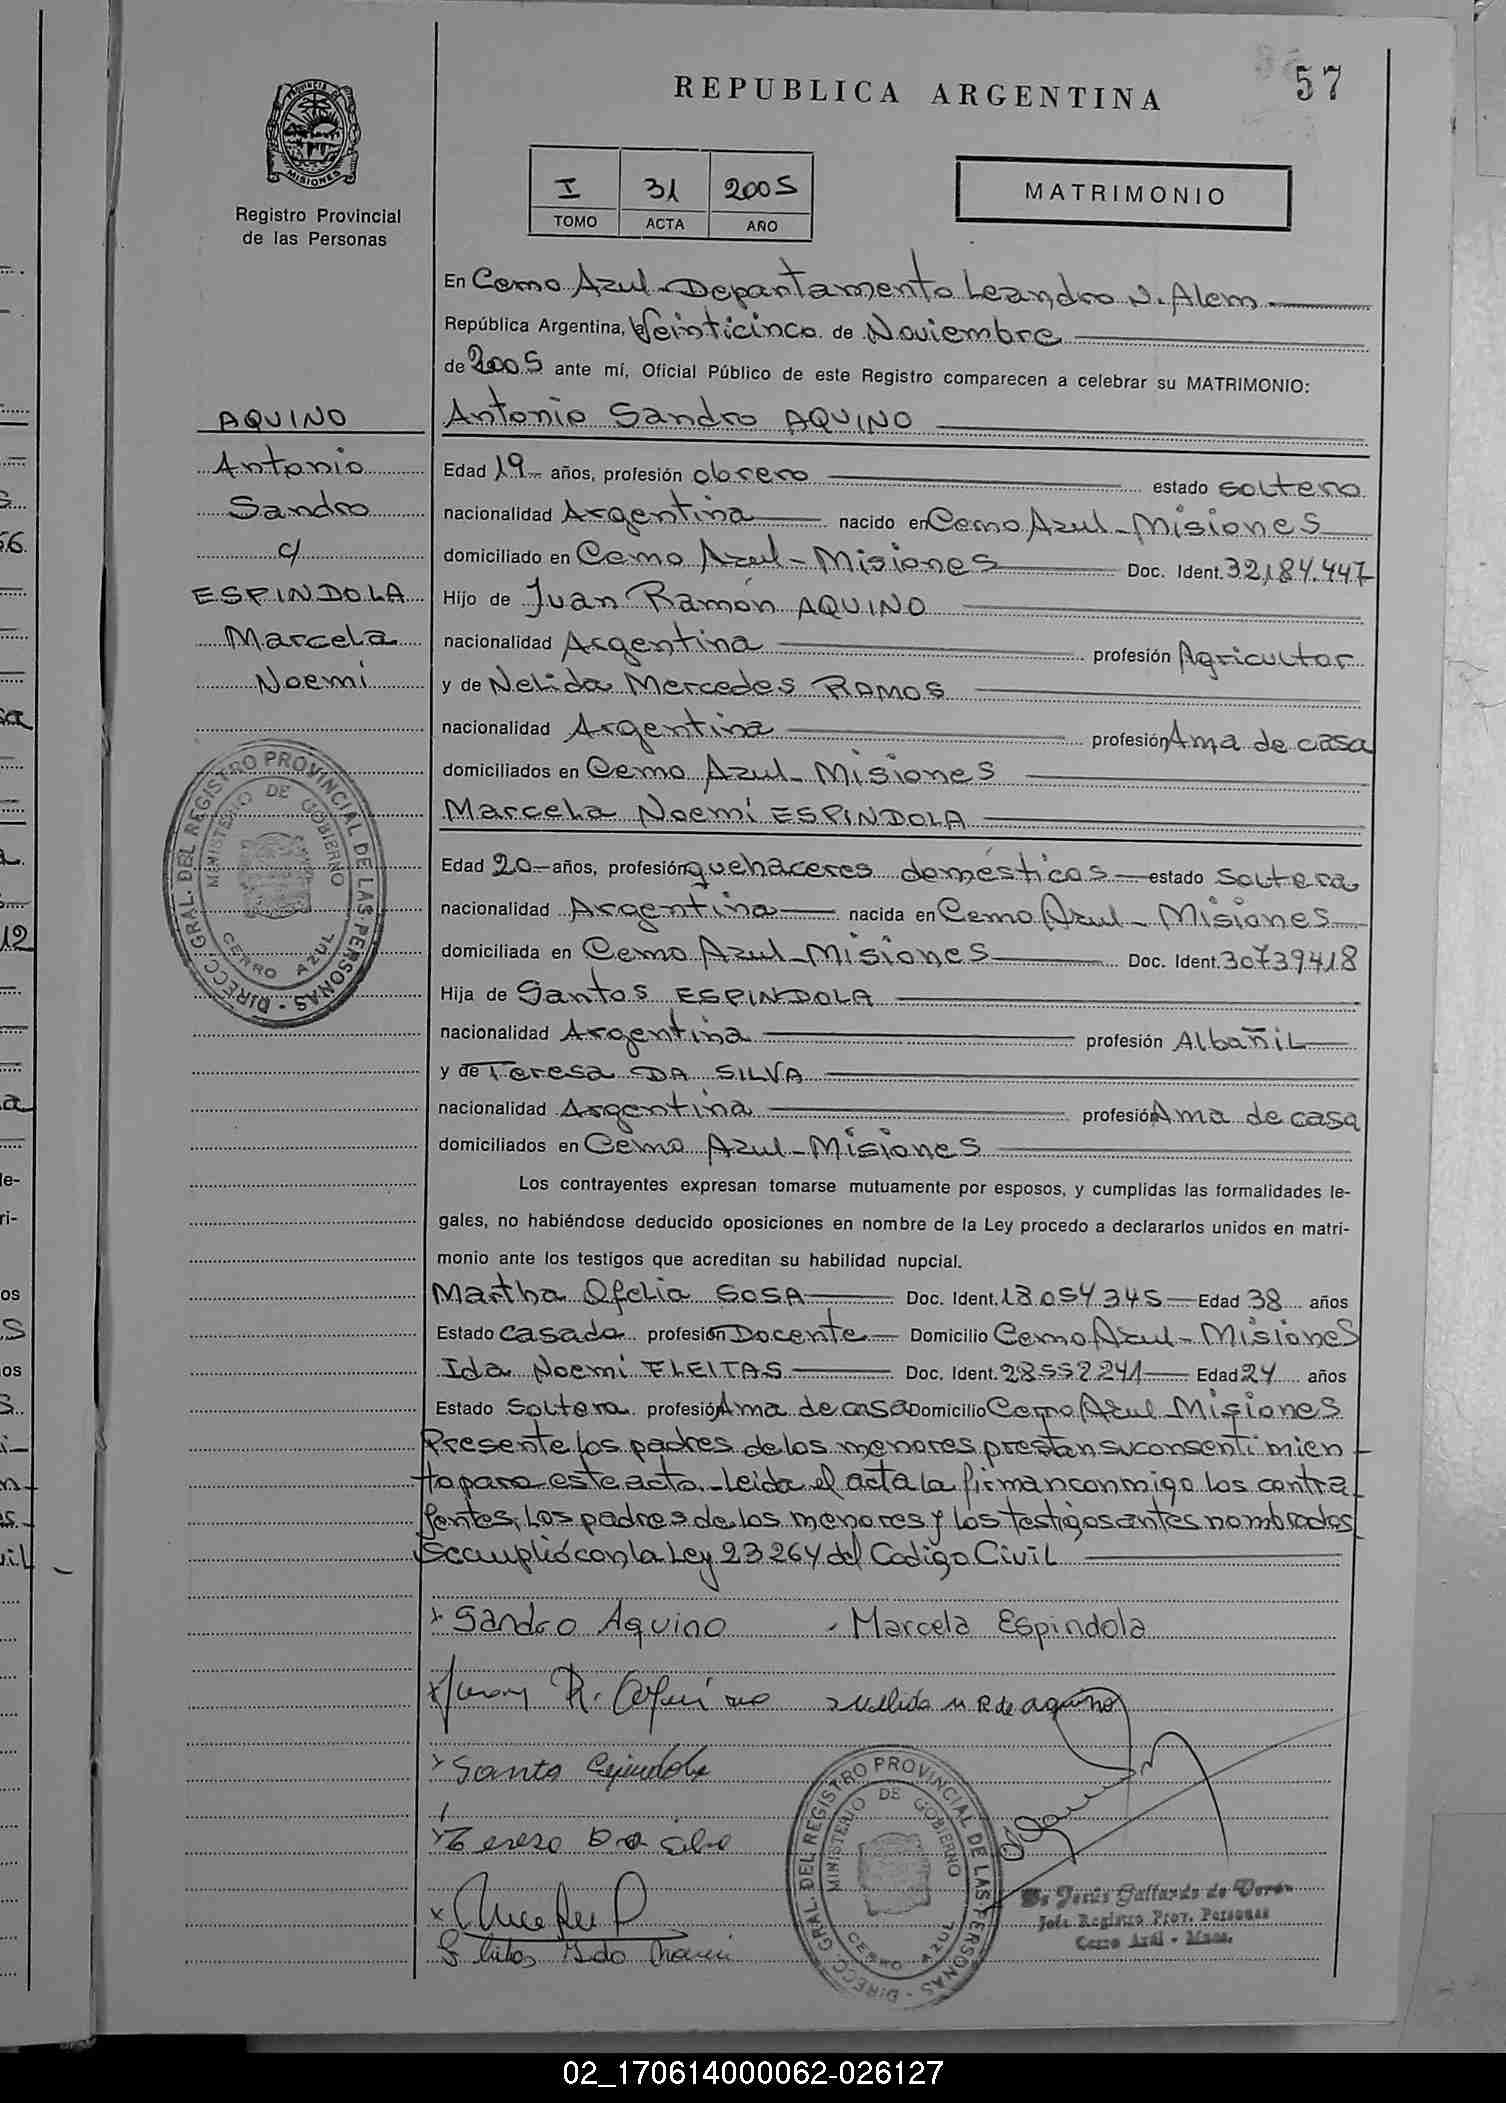 57
REPUBLICA ARGENTINA
MISIONES
Registro Provincial
de las Personas
I 31 2005
TOMO ACTA AÑO
MATRIMONIO
En Cerro Azul - Departamento Leandro N. Alem
República Argentina, Veinticinco de Noviembre
de 2005 ante mí, Oficial Público de este Registro comparecen a celebrar su MATRIMONIO:
AQUINO
Antonio
Sandro
c/
ESPINDOLA
Marcela
Noemi
Antonio Sandro AQUINO
Edad 19 años, profesión obrero estado soltero
nacionalidad Argentina nacido en Cerro Azul - Misiones
domiciliado en Cerro Azul - Misiones Doc. Ident. 32,184.447
Hijo de Juan Ramón AQUINO
nacionalidad Argentina profesión Agricultor
y de Nelida Mercedes RAMOS
nacionalidad Argentina profesión Ama de casa
domiciliados en Cerro Azul - Misiones
Marcela Noemi ESPINDOLA
Edad 20 años, profesión quehaceres domésticos estado soltera
nacionalidad Argentina nacida en Cerro Azul - Misiones
domiciliada en Cerro Azul - Misiones Doc. Ident. 30739418
Hija de Santos ESPINDOLA
nacionalidad Argentina profesión Albañil
y de Teresa DA SILVA
nacionalidad Argentina profesión Ama de casa
domiciliados en Cerro Azul - Misiones
Los contrayentes expresan tomarse mutuamente por esposos, y cumplidas las formalidades le-
gales, no habiéndose deducido oposiciones en nombre de la Ley procedo a declararlos unidos en matri-
monio ante los testigos que acreditan su habilidad nupcial.
Martha Ofelia SOSA Doc. Ident. 18054345 Edad 38 años
Estado casada profesión Docente Domicilio Cerro Azul - Misiones
Ida Noemi FLEITAS Doc. Ident. 28552241 Edad 24 años
Estado Soltera profesión Ama de casa Domicilio Cerro Azul - Misiones
Presente los padres de los menores prestan su consentimien-
to para este acto - Leida el acta la firman conmigo los contra
yentes, los padres de los menores y los testigos antes nombrados
Se cumplió con la Ley 23264 del Codigo Civil
x Sandro Aquino - Marcela Espindola
x Juan R. Aquino Nelida M R de aquino
x Santo Espindola
x Tereza Da Silva
Fleitas Ida Noemi
DIRECC. GRAL. DEL REGISTRO PROVINCIAL DE LAS PERSONAS
MINISTERIO DE GOBIERNO
CERRO AZUL
DIRECC. GRAL. DEL REGISTRO PROVINCIAL DE LAS PERSONAS
MINISTERIO DE GOBIERNO
CERRO AZUL
De Jesús Gallardo de Verón
Jefe Registro Prov. Personas
Cerro Azul - Mnes.
02_170614000062-026127